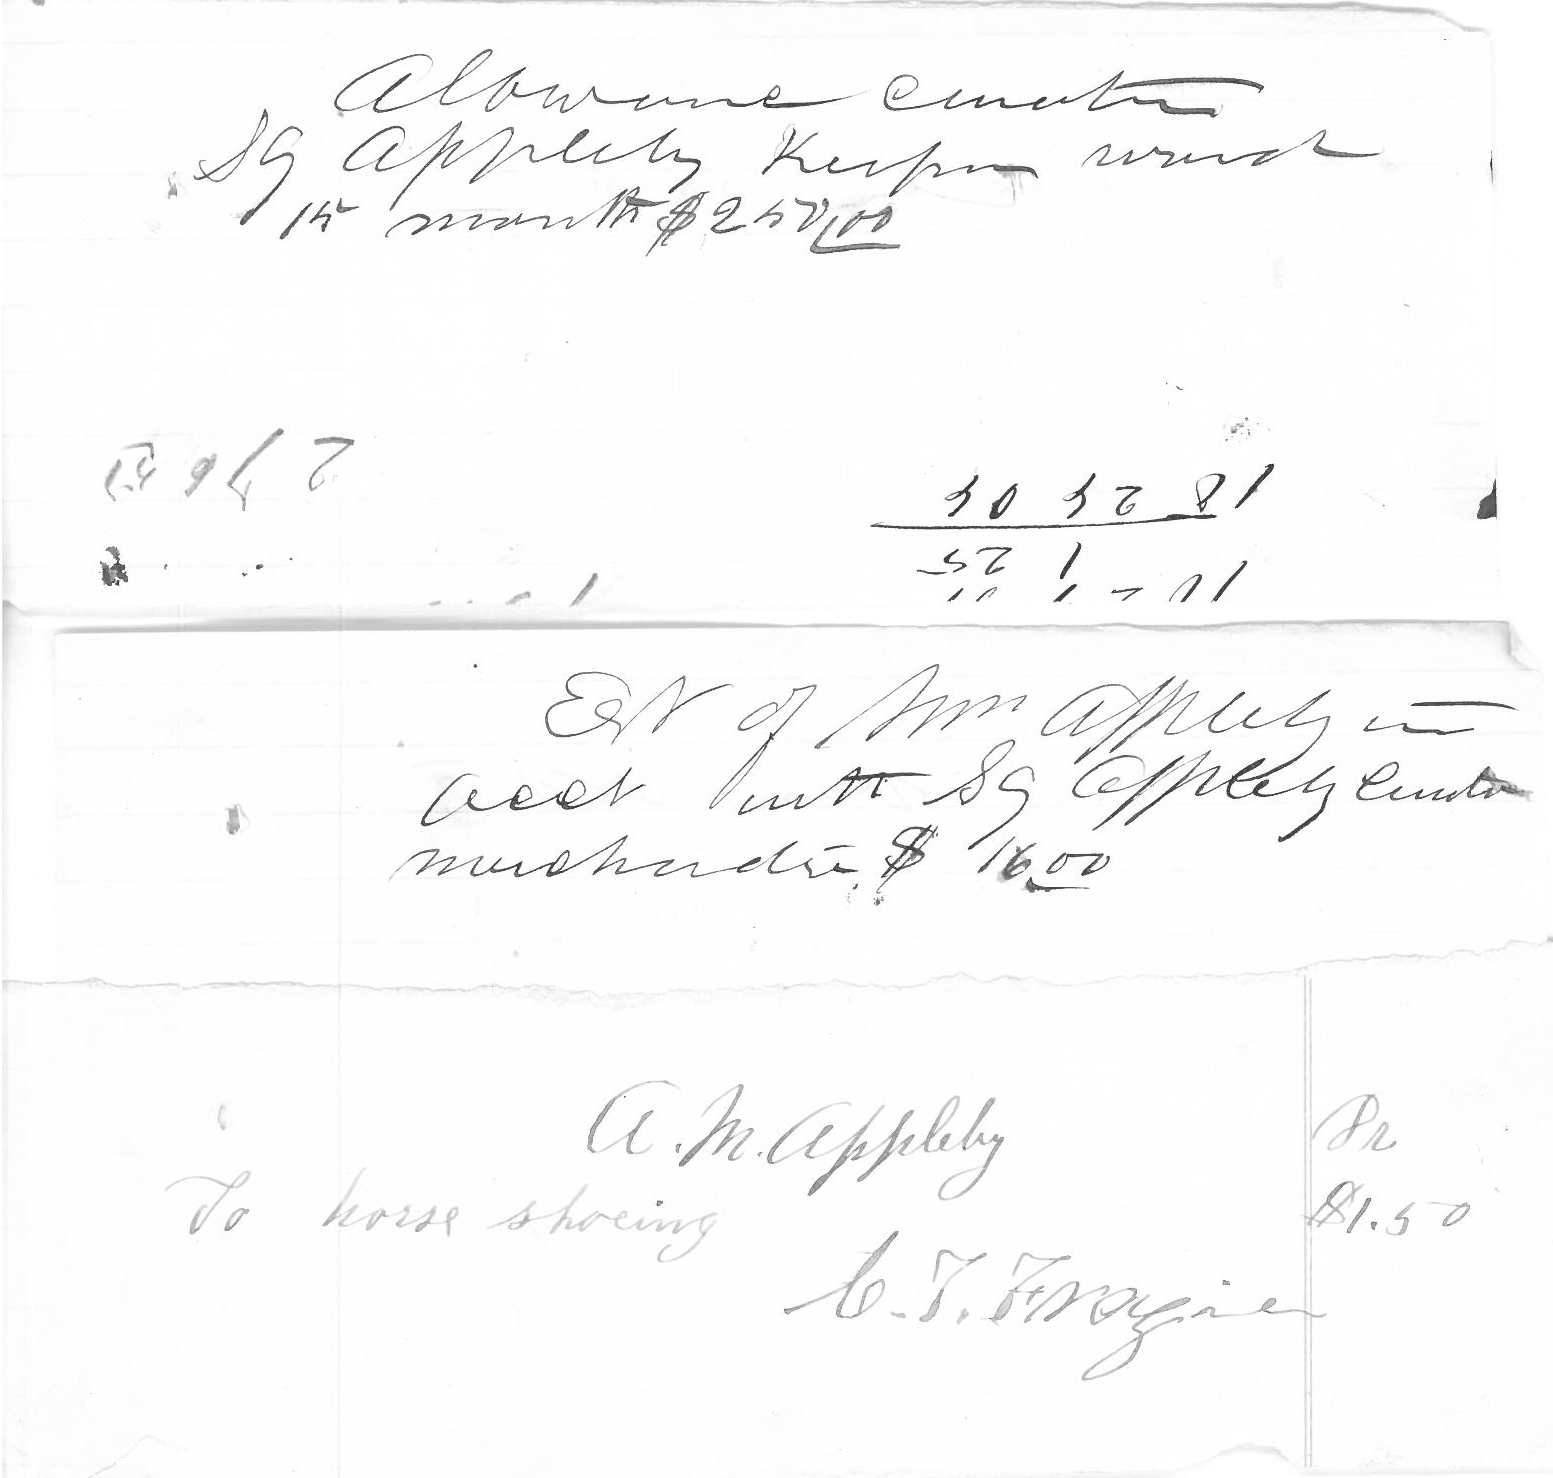 Alowance Curator
SG Appleby Keepin ward
15 month $250.00
18 25 05
1 25
Est of Wm Appleby in
acct with SG Appleby Curator
merchandise $ 16.00
A. M. Appleby Dr
To horse shoeing $1.50
C. T. Frazier